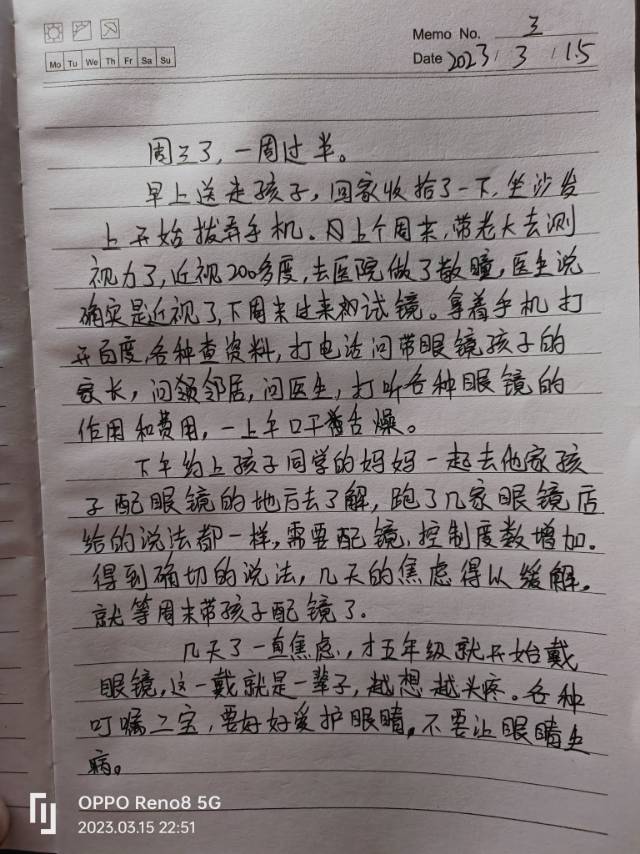 Memo No. 三
Mo Tu We Th Fr Sa Su
Date 2023 / 3 / 15
周三了，一周过半。
早上送走孩子，回家收拾了一下，坐沙发
上开始拨弄手机。因上个周末，带老大去测
视力了，近视200多度，去医院做了散瞳，医生说
确实是近视了，下周末过来初试镜。拿着手机打
开百度，各种查资料，打电话问带眼镜孩子的
家长，问领邻居，问医生，打听各种眼镜的
作用和费用，一上午口干舌燥。
下午约上孩子同学的妈妈一起去他家孩
子配眼镜的地方去了解，跑了几家眼镜店
给的说法都一样，需要配镜，控制度数增加。
得到确切的说法，几天的焦虑得以缓解。
就等周末带孩子配镜了.
几天了一直焦虑，才五年级就开始戴
眼镜，这一戴就是一辈子，越想越头疼。各种
叮嘱二宝，要好好爱护眼睛，不要让眼睛生
病。
OPPO Reno8 5G
2023.03.15 22:51